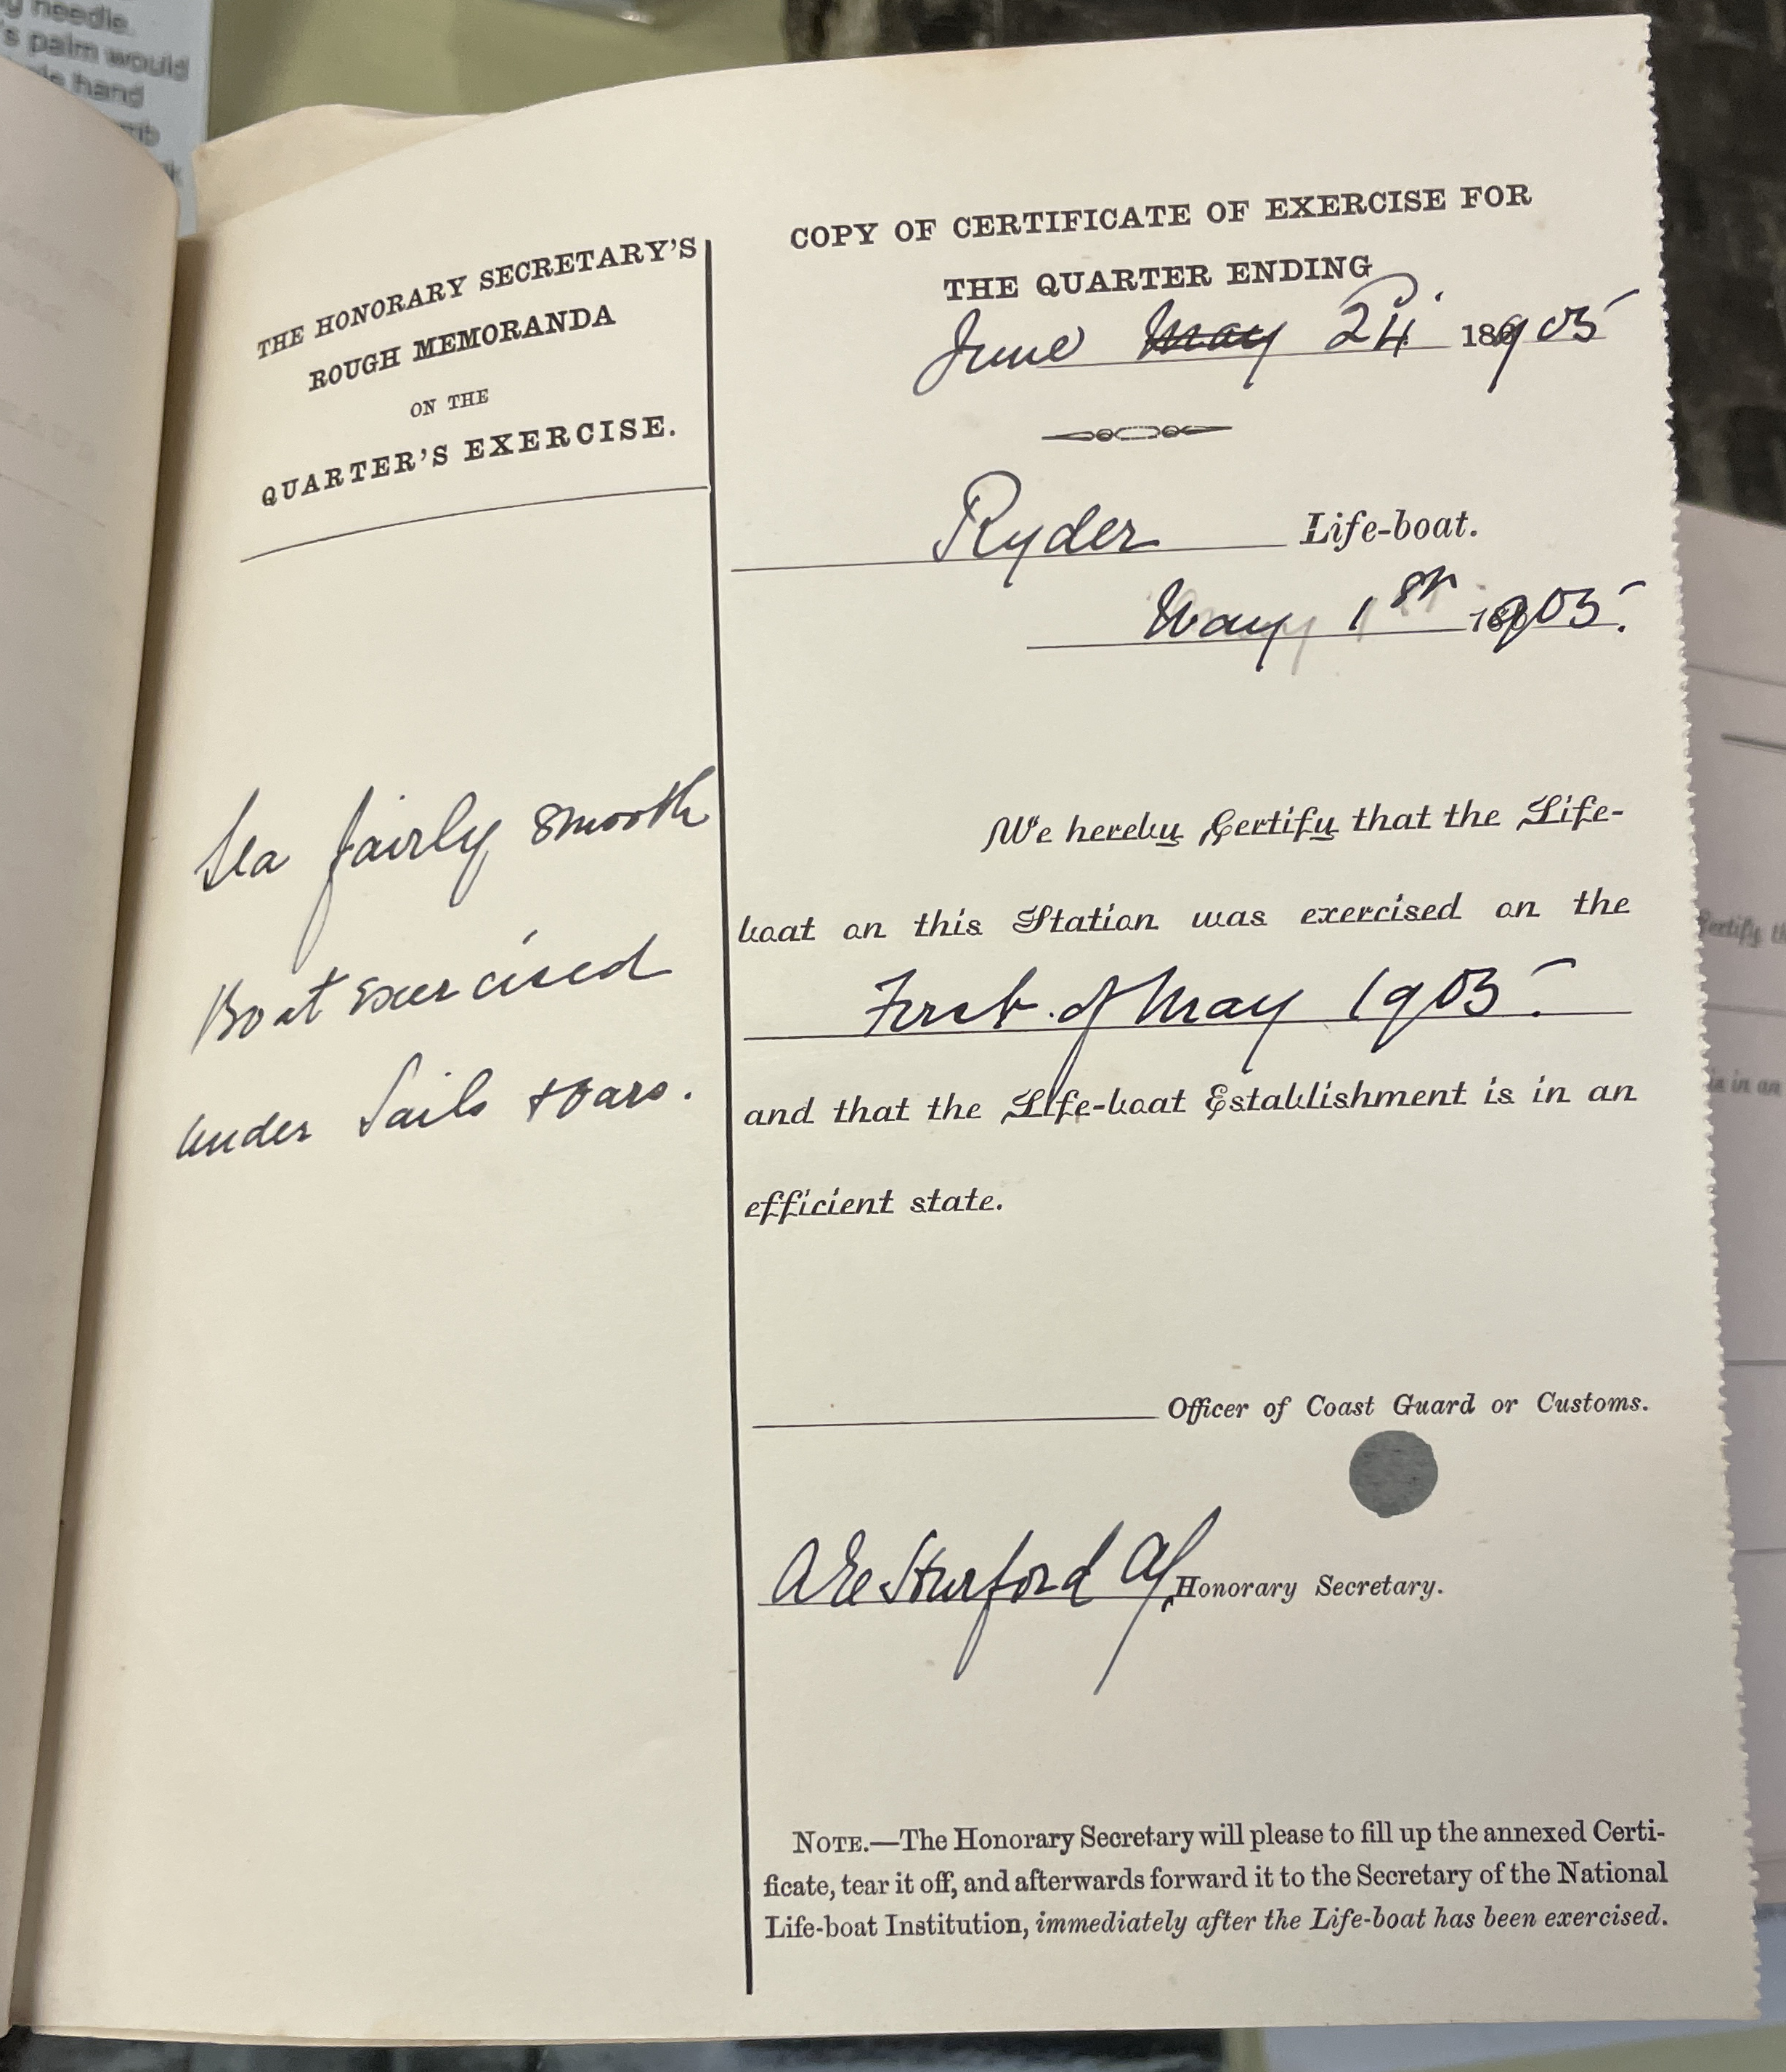 y needle.
's palm would
hand
THE HONORARY SECRETARY'S
ROUGH MEMORANDA
ON THE
QUARTER'S EXERCISE.
Sea fairly smooth
Boat exercised
under Sails + oars.
COPY OF CERTIFICATE OF EXERCISE FOR
THE QUARTER ENDING
June May 24 1905
Ryder Life-boat.
May 1st 1905.
We hereby Certify that the Life-
boat on this Station was exercised on the
First of May 1905.
and that the Life-boat Establishment is in an
efficient state.
Officer of Coast Guard or Customs.
Honorary Secretary.
NOTE.—The Honorary Secretary will please to fill up the annexed Certi-
ficate, tear it off, and afterwards forward it to the Secretary of the National
Life-boat Institution, immediately after the Life-boat has been exercised.
Certify th
is in an